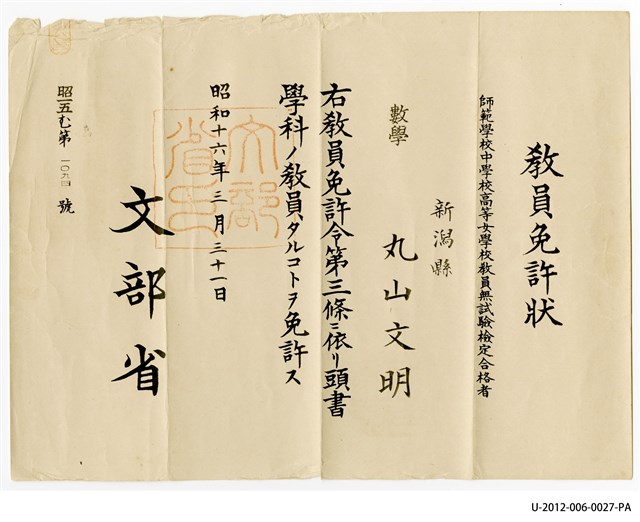 教員免許状
師範學校中學校高等女學校教員無試驗檢定合格者
新潟縣
丸山文明
數學
右教員免許令第三條ニ依リ頭書
學科ノ教員タルコトヲ免許ス
昭和十六年三月三十一日
文部省
文部
省印
昭一五む第一〇九四號
U-2012-006-0027-PA